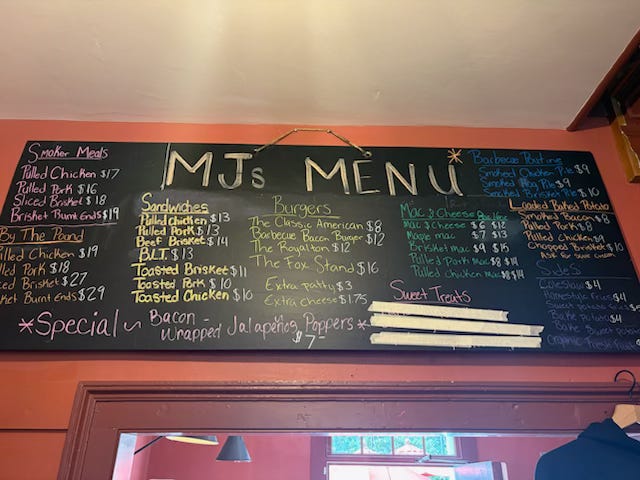 MJs MENU
Smoker Meals
Pulled Chicken $17
Pulled Pork $16
Sliced Brisket $18
Brisket Burnt Ends $19
By The Pound
Pulled Chicken $19
Pulled Pork $18
Brisket $27
Brisket Burnt Ends $29
Sandwiches
Pulled Chicken $13
Pulled Pork $13
Beef Brisket $14
B.L.T. $13
Toasted Brisket $11
Toasted Pork $10
Toasted Chicken $10
Burgers
The Classic American $8
Barbecue Bacon Burger $12
The Royalton $12
The Fox Stand $16
Extra patty $3
Extra Cheese $1.75
Mac & Cheese
Mac & Cheese $6 $12
Maple mac $7 $13
Brisket mac $9 $15
Pulled Pork mac $8 $14
Pulled Chicken mac $8 $14
Sweet Treats
Barbecue
Smoked Chicken Pie $9
Smoked Pie $9
Smoked Brisket Pie $10
Loaded Baked Potato
Smoked Bacon $8
Pulled Pork $8
Pulled Chicken $9
Brisket $10
Ask for sour cream
Sides
Coleslaw $4
Homestyle Fries $4
Bake Potato $4
Bake Sweet
*Special~ Bacon-
Wrapped Jalapeños Poppers*
$7-